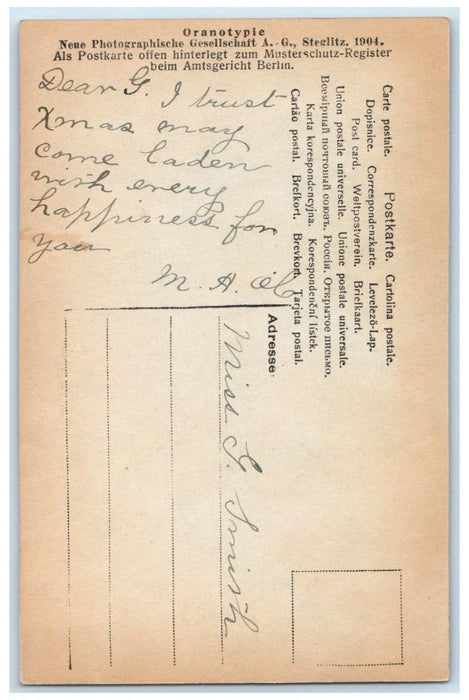 Oranotypie
Neue Photographische Gesellschaft A.-G., Steglitz. 1904.
Als Postkarte offen hinterlegt zum Musterschutz-Register
beim Amtsgericht Berlin.
Dear G. I trust
Xmas may
come laden
with every
happiness for
you
M. A.
Postkarte.
Carte postale. Cartolina postale.
Dopisnice. Correspondenzkarte. Levelező-Lap.
Post card. Weltpostverein. Briefkaart.
Union postale universelle. Unione postale universale.
Всемірный почтовый союзъ. Россія. Открытое письмо.
Karta korespondencyjna. Korespondenční lístek.
Cartão postal. Brefkort. Brevkort. Tarjeta postal.
Adresse:
Miss G. Smith